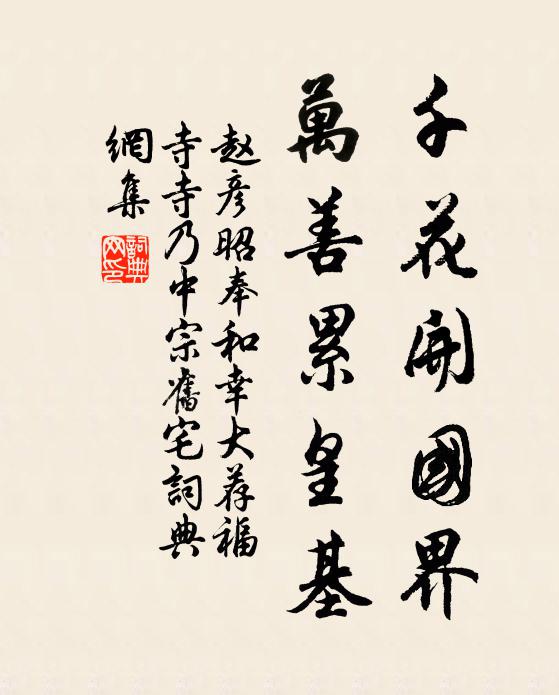 千花開國界
萬善累皇基
赵彦昭奉和幸大荐福
寺寺乃中宗舊宅詞典
網集
詞典
网印